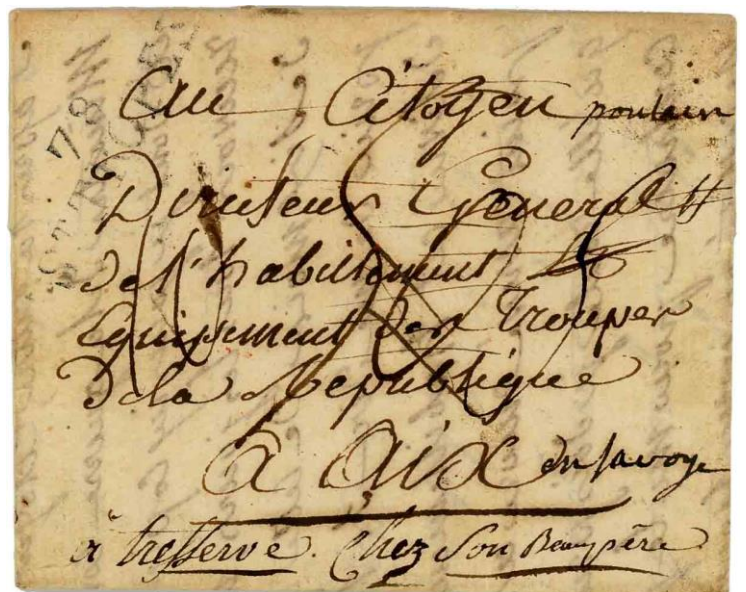 78
ST TROPEZ
Au Citoyen poulain
Directeur General
de l'habillement &
Equipement des Troupes
de la Republique
à Aix en savoye
à tresserve. Chez Son Beaupère